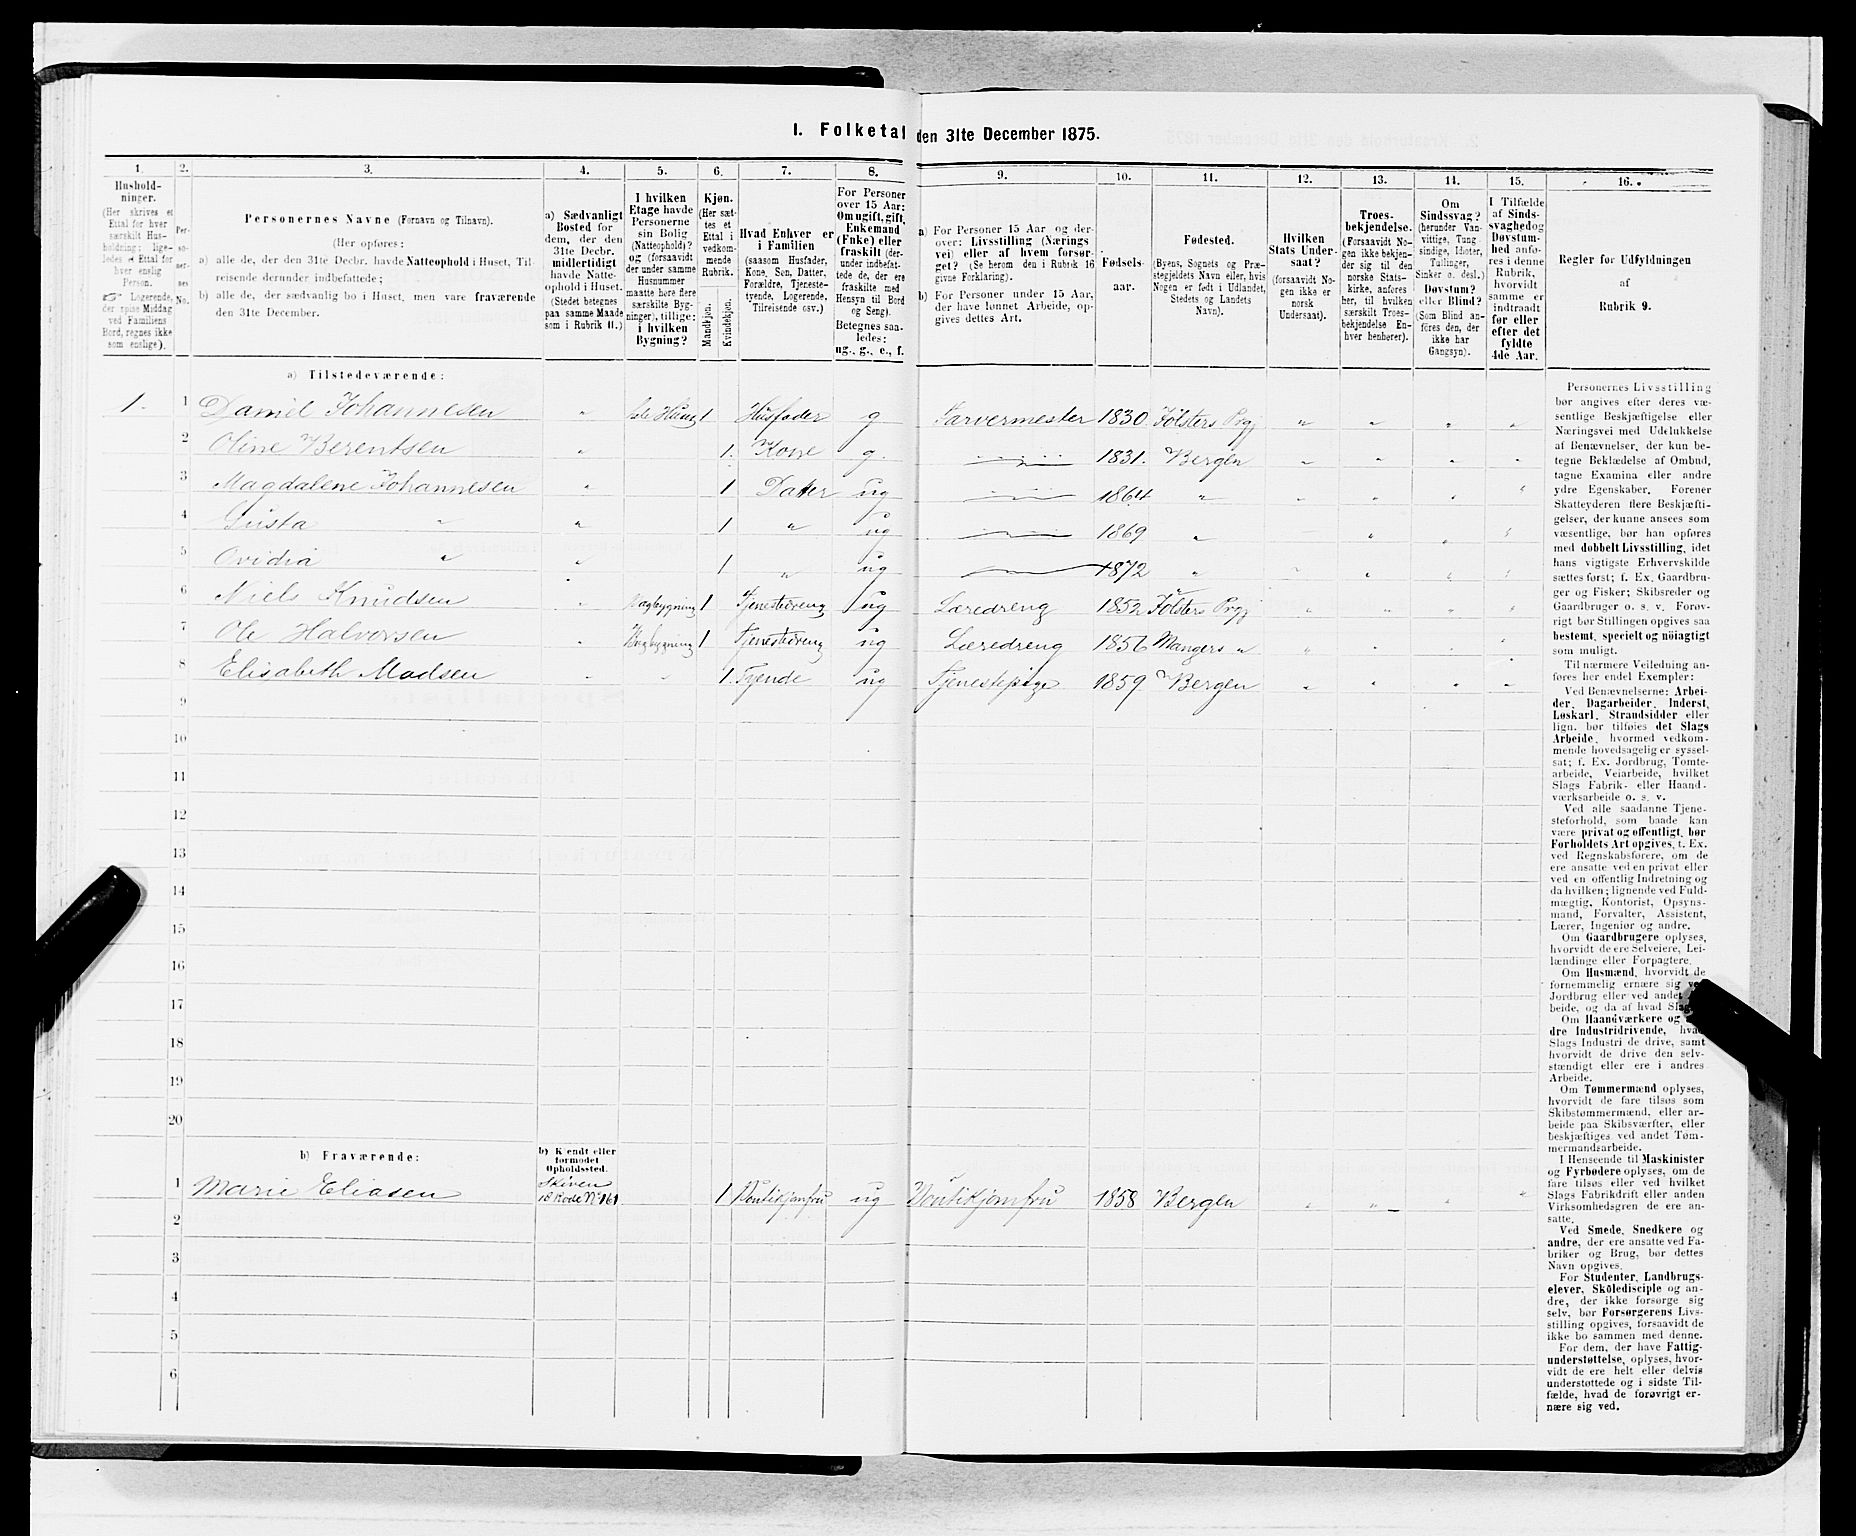 1. Folketal den 31te December 1875.
1.
Hushold-
ninger.
(Her skrives et
Ettal for hver
særskilt Hus-
holdning; lige-
ledes et Ettal for
hver enslig
Person.
☞ Logerende,
der spise Middag
ved Familiens
Bord, regnes ikke
som enslige).
2.
Per-
so-
ner-
nes
No.
3.
Personernes Navne (Fornavn og Tilnavn).
(Her opføres:
a) alle de, der den 31te Decbr. havde Natteophold i Huset, Til-
reisende derunder indbefattede;
b) alle de, der sædvanlig bo i Huset, men vare fraværende
den 31te December.
4.
a) Sædvanligt
Bosted for
dem, der den
31te Decbr.
midlertidigt
havde Natte-
ophold i Huset.
(Stedet betegnes
paa samme Maade
som i Rubrik 11.)
5.
I hvilken
Etage havde
Personerne
sin Bolig
(Natteophold)?
og (forsaavidt
der under samme
Husnummer
maatte høre flere
særskilte Byg-
ninger), tillige:
i hvilken
Bygning?
6.
Kjøn.
(Her sæt-
tes et
Ettal i
vedkom-
mende
Rubrik.
Mandkjøn.
Kvindekjøn.
7.
Hvad Enhver er
i Familien
(saasom Husfader,
Kone, Søn, Datter,
Forældre, Tjeneste-
tyende, Logerende,
Tilreisende osv.)
8.
For Personer
over 15 Aar:
Om ugift, gift,
Enkemand
(Enke) eller
fraskilt (der-
under indbefat-
tede de, der ere
fraskilte med
Hensyn til Bord
og Seng).
Betegnes saa-
ledes:
ug., g., e., f.
9.
a) For Personer 15 Aar og der-
over: Livsstilling (Nærings
vei) eller af hvem forsør-
get? (Se herom den i Rubrik 16
givne Forklaring).
b) For Personer under 15 Aar,
der have lønnet Arbeide, op-
gives dettes Art.
10.
Fødsels-
aar.
11.
Fødested.
(Byens, Sognets og Præ-
stegjeldets Navn eller, hvis
Nogen er født i Udlandet,
Stedets og Landets
Navn).
12.
Hvilken
Stats Under-
saat?
(forsaavidt No-
gen ikke er
norsk
Undersaat).
13.
Troes-
bekjendelse.
(Forsaavidt No-
gen ikke bekjen-
der sig til den
norske Stats-
kirke, anføres
her, til hvilken
særskilt Troes-
bekjendelse En-
hver henhører).
14.
Om
Sindssvag?
(herunder Van-
vittige, Tung
sindige, Idioter,
Tullinger,
Sinker o. desl.)
Døvstum?
eller Blind?
(Som Blind an-
føres den, der
ikke har
Gangsyn).
15.
I Tilfælde
af Sinds-
svaghed og
Døvstum-
hed anfø-
res i denne
Rubrik,
hvorvidt
samme er
indtraadt
før eller
efter det
fyldte
4de Aar.
16.
Regler for Udfyldningen
af
Rubrik 9.
a) Tilstedeværende:
1. 1 Daniel Johannesen " 1 Husfader g Farvermester 1830. Prgj " " " "
2 Oline Berentsen " 1. Kone g. 1831. Bergen " " " "
3 Magdalene Johannesen " 1 Datter ug 1864 " " " " "
4 Gusta " " 1 " ug 1869 " " " "
5 Ovidia " " 1 " ug 1872 " " " " "
6 Niels Knudsen " Bagbygning 1 Tjenestdreng ug Læredreng 1852 Prgj " " " "
7 Ole Halvorsen " Bagbygning 1 Tjenestdreng ug Læredreng 1856 Mangers " " " " "
8 Elisabeth Madsen " " 1. Tyende ug Tjenestepige 1859 Bergen " " " "
9
10
11
12
13
14
15
16
17
18
19
20
b) Fraværende:
b) Kjendt eller
formodet
Opholdssted.
Skiven
18 Rode No 161
1 Marie Eliasen 1 Boutikjomfru ug Boutikjomfru 1858 Bergen " " " "
2
3
4
5
6
Personernes Livsstilling
bør angives efter deres væ-
sentlige Beskjæftigelse eller
Næringsvei med Udelukkelse
af Benævnelser, der kun be-
tegne Beklædelse af Ombud,
tagne Examina eller andre
ydre Egenskaber. Forener
Skatteyderen flere Beskjæfti-
gelser, der kunne ansees som
væsentlige, bør han opføres
med dobbelt Livsstilling, idet
hans vigtigste Erhvervskilde
sættes først; f. Ex. Gaardbru-
ger og Fisker; Skibsreder og
Gaardbruger o. s. v. Forøv-
rigt bør Stillingen opgives saa
bestemt, specielt og nöiagtigt
som muligt.
Til nærmere Veiledning an-
føres her endel Exempler:
Ved Benævnelserne: Arbei-
der, Dagarbeider, Inderst,
Løskarl, Strandsidder eller
lign. bør tilføies det Slags
Arbeide, hvormed vedkom-
mende hovedsagelig er syssel-
sat; f. Ex. Jordbrug, Tomte-
arbeide, Veiarbeide, hvilket
Slags Fabrik- eller Haand-
værksarbeide o. s. v.
Ved alle saadanne Tjene-
steforhold, som baade kan
være privat og offentligt, bør
Forholdets Art opgives, t. Ex.
ved Regnskabsførere, om de
ere ansatte ved en privat eller
ved en offentlig Indretning og
da hvilken; lignende ved Fuld-
mægtig, Kontorist, Opsyns-
mand, Forvalter, Assistent,
Lærer, Ingeniør og andre.
Om Gaardbrugere oplyses,
hvorvidt de ere Selveiere, Lei-
lændinge eller Forpagtere.
Om Husmænd, hvorvidt de
fornemmelig ernære sig ve
Jordbrug eller ved andet
beide, og da af hvad Slag
Om Haandværkere og
dre Industridrivende, hvad
Slags Industri de drive, samt
hvorvidt de drive den selv-
stændigt eller ere i andres
Arbeide.
Om Tømmermænd oplyses,
hvorvidt de fare tilsøs som
Skibstømmermænd, eller ar-
beide paa Skibsværfter, eller
beskjæftiges ved andet Tøm-
mermandsarbeide.
I Henseende til Maskinister
og Fyrbødere oplyses, om de
fare tilsøs eller ved hvilket
Slags Fabrikdrift eller anden
Virksomhedsgren de ere an-
satte.
Ved Smede, Snedkere og
andre, der ere ansatte ved Fa-
briker og Brug, bør dettes
Navn opgives.
For Studenter, Landbrugs-
elever, Skøledisciple og an-
dre, der ikke forsørge sig
selv, bør Forsørgerens Livs-
stilling opgives, forsaavidt de
ikke bo sammen med denne.
For dem, der have Fattig-
understøttelse, oplyses, hvor-
vidt de ere helt eller delvis
understøttede og i sidste Til-
fælde, hvad de forøvrigt er-
nære sig ved.